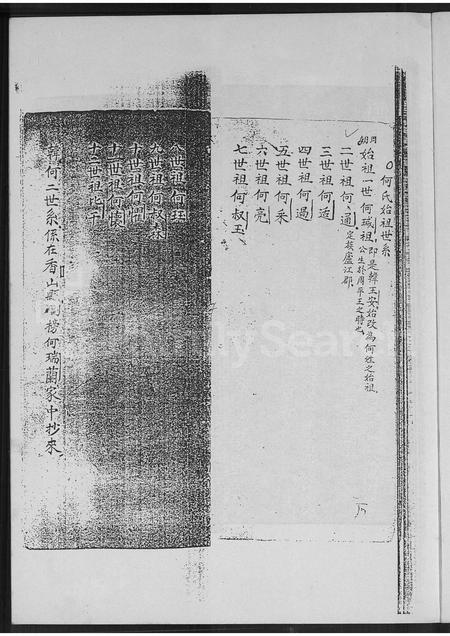 何氏始祖世系
周朝始祖一世何瑊祖，即是韓王安，始改為何姓之始祖
公生於周平王之時也
二世祖何通 定族廬江郡
三世祖何适
四世祖何過
五世祖何采
六世祖何亮
七世祖何叔玉
八世祖何玨
九世祖何叔森
十世祖何
十一世祖何
十二世祖比干
韓何二世系係在香山 何瑞蘭家中抄來
FamilySearch